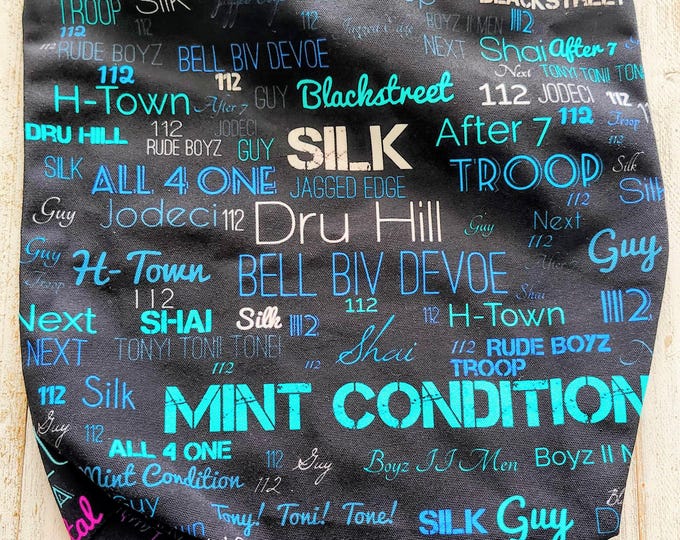 TROOP Silk Jagged Edge BOYZ II MEN 112 BLACKSTREET
112 RUDE BOYZ BELL BIV DEVOE Jagged Edge NEXT Shai After 7
112 112 Next TONY! TONI! TONE!
H-Town After 7 GUY Blackstreet 112 JODECI
DRU HILL 112 JODECI SILK After 7 112 Troop
RUDE BOYZ GUY TROOP Silk
SILK ALL 4 ONE JAGGED EDGE Silk
Guy Jodeci 112 Dru Hill Guy Next Guy
Guy H-Town BELL BIV DEVOE 112 After 7
Troop 112 112 Shai 112
Next SHAI Silk 112 H-Town
NEXT TONY! TONI! TONE! 112 Shai 112 RUDE BOYZ
TROOP
112 Silk MINT CONDITION
Guy 112 ALL 4 ONE 112 Guy Boyz II Men Boyz II M
Mint Condition 112
Guy Tony! Toni! Tone! SILK Guy